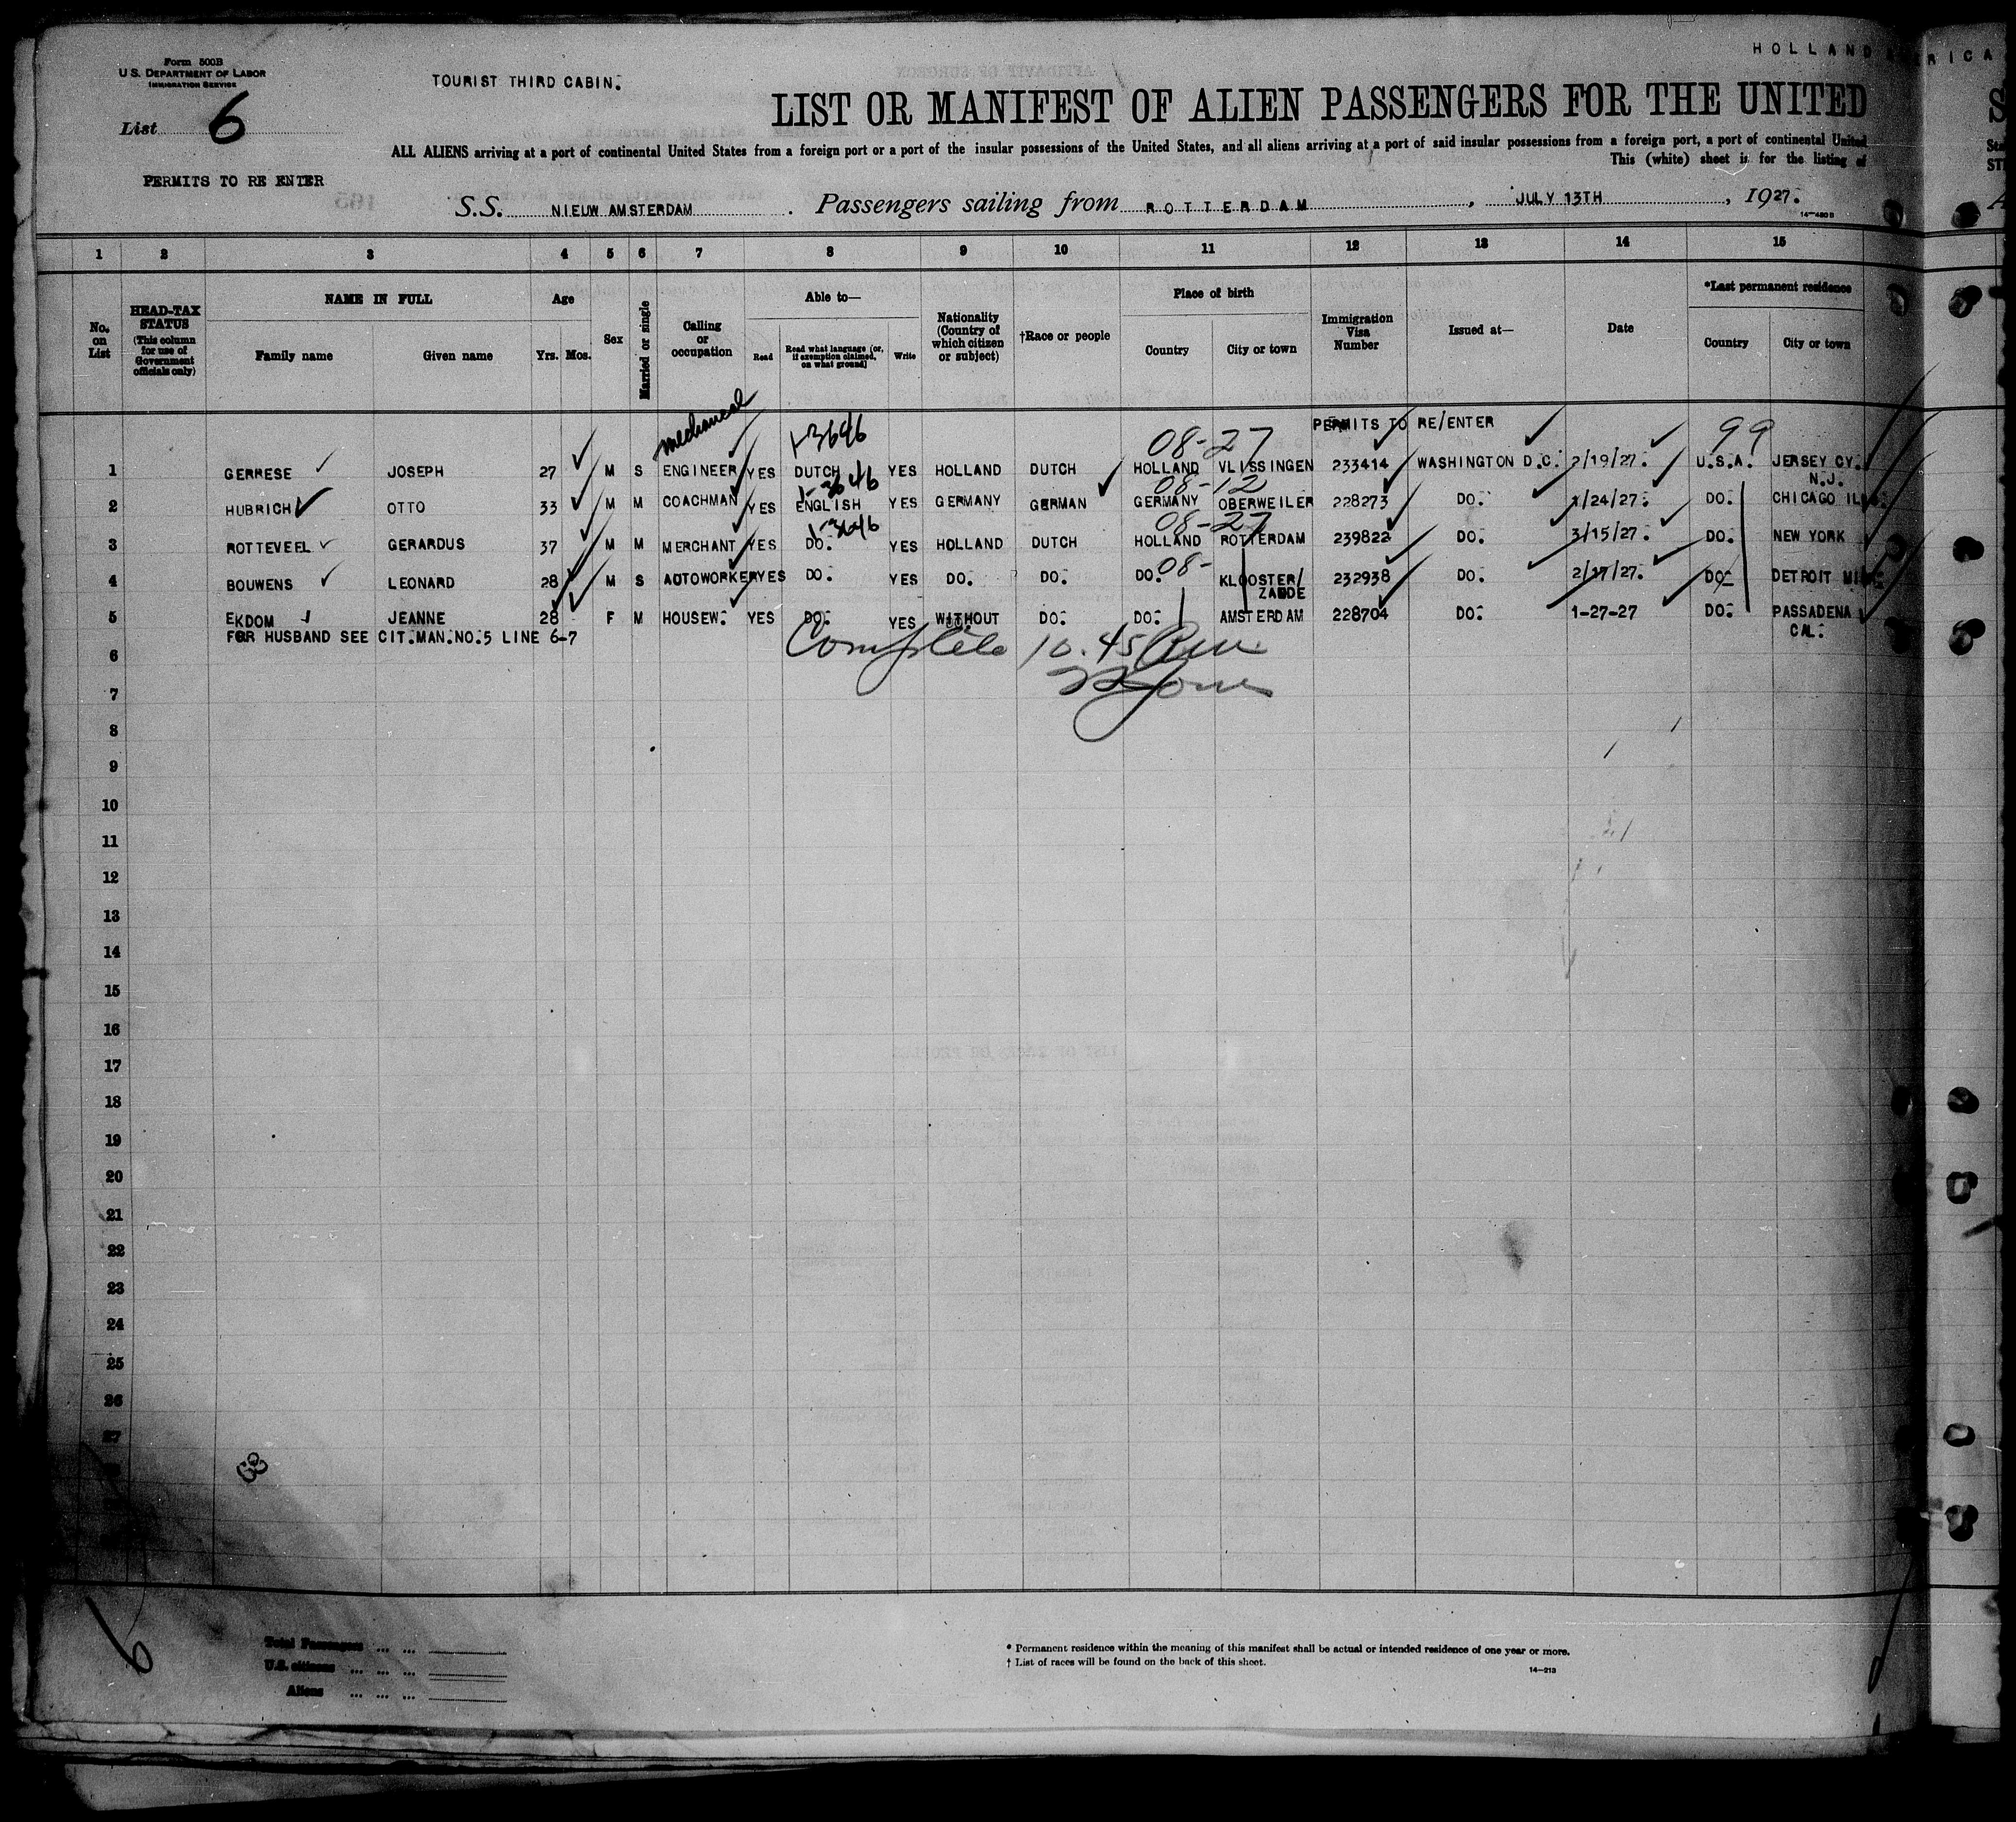 HOLLAND
RICA
Form 500B
U.S. DEPARTMENT OF LABOR
IMMIGRATION SERVICE
TOURIST THIRD CABIN.
LIST OR MANIFEST OF ALIEN PASSENGERS FOR THE UNITED
List 6
ALL ALIENS arriving at a port of continental United States from a foreign port or a port of the insular possessions of the United States, and all aliens arriving at a port of said insular possessions from a foreign port, a port of continental United
This (white) sheet is for the listing of
PERMITS TO RE ENTER
S.S. NIEUW AMSTERDAM . Passengers sailing from ROTTERDAM , JULY 13TH , 1927.
14—480B
1 2 3 4 5 6 7 8 9 10 11 12 13 14 15
No. on List
HEAD-TAX STATUS (This column for use of Government officials only)
NAME IN FULL Family name Given name
Age Yrs. Mos.
Sex
Married or single
Calling or occupation
Able to— Read Read what language (or, if exemption claimed, on what ground) Write
Nationality (Country of which citizen or subject)
†Race or people
Place of birth Country City or town
Immigration Visa Number
Issued at—
Date
*Last permanent residence Country City or town
mechanical 1-3646 08-27 PERMITS TO RE/ENTER 99
1 GERRESE JOSEPH 27 M S ENGINEER YES DUTCH YES HOLLAND DUTCH HOLLAND VLISSINGEN 233414 WASHINGTON D.C. 2/19/27. U.S.A. JERSEY CY. N.J.
1-3646 08-12
2 HUBRICH OTTO 33 M M COACHMAN YES ENGLISH YES GERMANY GERMAN GERMANY OBERWEILER 228273 DO. 1/24/27. DO. CHICAGO ILL.
1-3646 08-27
3 ROTTEVEEL GERARDUS 37 M M MERCHANT YES DO. YES HOLLAND DUTCH HOLLAND ROTTERDAM 239822 DO. 3/15/27. DO. NEW YORK
08-
4 BOUWENS LEONARD 28 M S AUTOWORKER YES DO. YES DO. DO. DO. KLOOSTER/ZANDE 232938 DO. 2/17/27. DO. DETROIT MICH.
5 EKDOM JEANNE 28 F M HOUSEW. YES DO. YES WITHOUT DO. DO. AMSTERDAM 228704 DO. 1-27-27 DO. PASSADENA CAL.
FOR HUSBAND SEE CIT.MAN.NO.5 LINE 6-7
Complete 10.45
6
7
8
9
10
11
12
13
14
15
16
17
18
19
20
21
22
23
24
25
26
27
63
6
Total Passengers ... ...
U.S. citizens ... ... ...
Aliens ... ... ...
* Permanent residence within the meaning of this manifest shall be actual or intended residence of one year or more.
† List of races will be found on the back of this sheet.
14—213